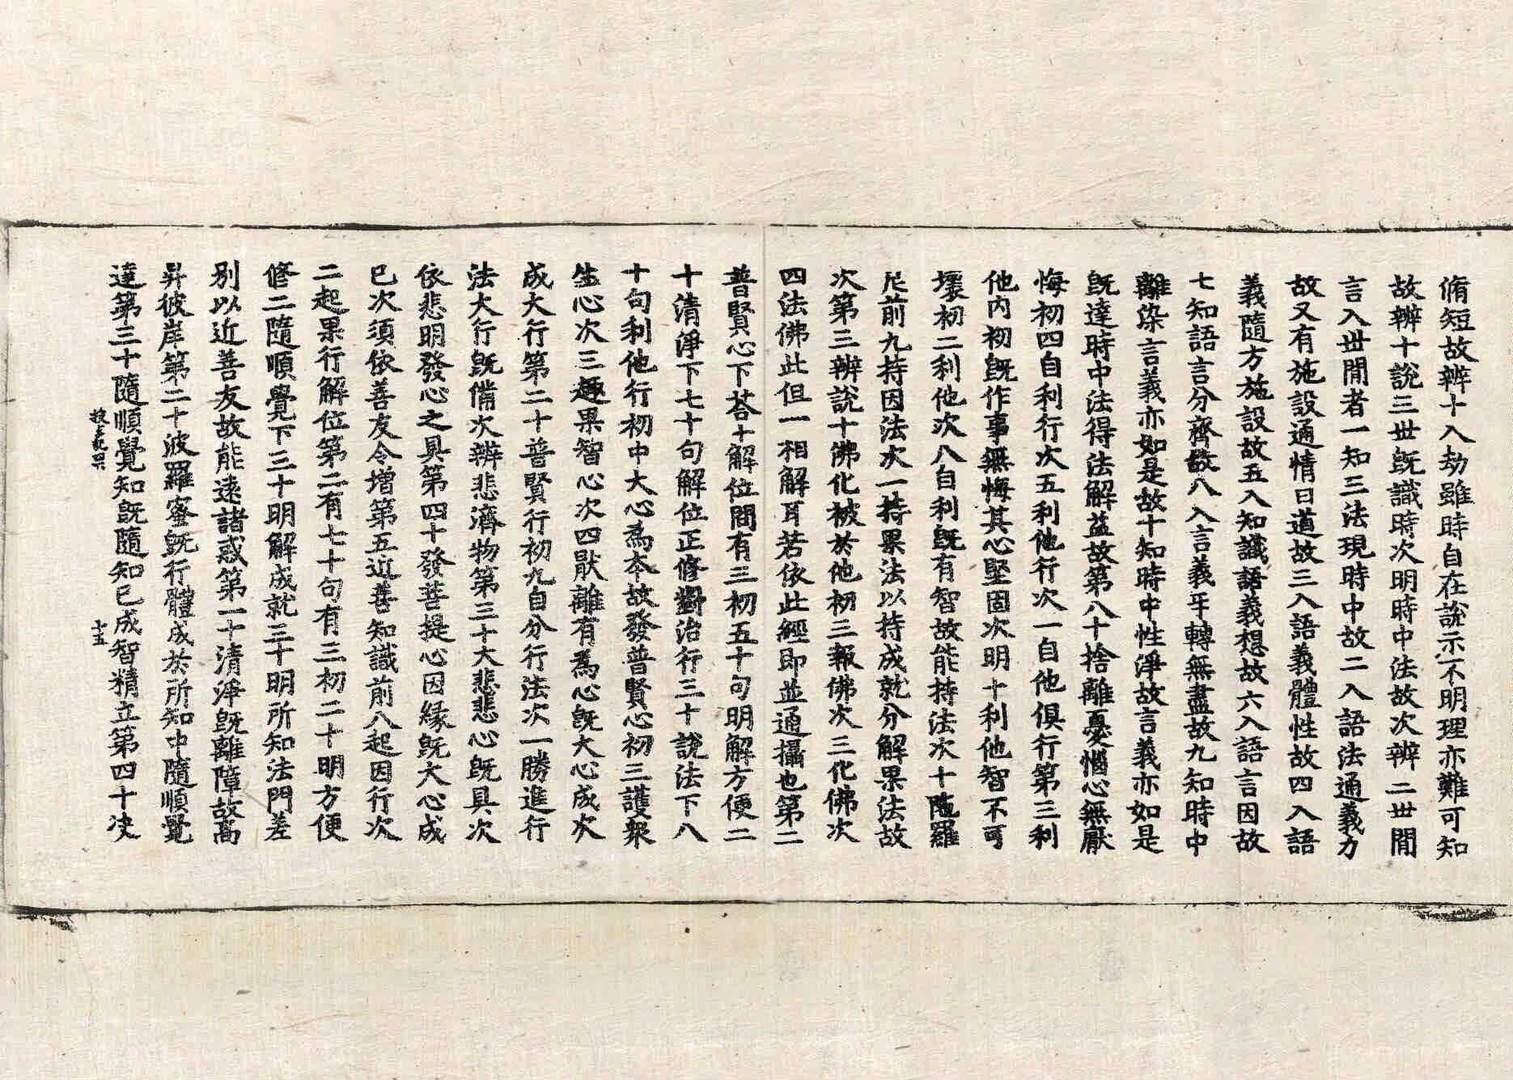 脩短故辨十入劫雖時自在說示不明理亦難可知
故辨十說三世旣識時次明時中法故次辨二世閒
言入世閒者一知三法現時中故二入語法通義力
故又有施設通情曰道故三入語義體性故四入語
義隨方施設故五入知識語義想故六入語言因故
七知語言分齊故八入言義平轉無盡故九知時中
離染言義亦如是故十知時中性淨故言義亦如是
旣達時中法得法解益故第八十捨離憂惱心無厭
悔初四自利行次五利他行次一自他俱行第三利
他內初旣作事無悔其心堅固次明十利他智不可
壞初二利他次八自利旣有智故能持法次十陁羅
尼前九持因法次一持果法以持成就分解果法故
次第三辨說十佛化被於他初三報佛次三化佛次
四法佛此但一相解耳若依此經即並通攝也第二
普賢心下荅十解位問有三初五十句明解方便二
十清淨下七十句解位正修對治行三十說法下八
十句利他行初中大心爲本故發普賢心初三護衆
生心次三趣果智心次四猒離有爲心旣大心成次
成大行第二十普賢行初九自分行法次一勝進行
法大行旣備次辨悲濟物第三十大悲悲心旣具次
依悲明發心之具第四十發菩提心因緣旣大心成
已次須依善友令增第五近善知識前八起因行次
二起果行解位第二有七十句有三初二十明方便
修二隨順覺下三十明解成就三十明所知法門差
別以近善友故能遠諸惑第一十清淨旣離障故高
昇彼岸第二十波羅蜜旣行體成於所知中隨順覺
達第三十隨順覺知旣隨知已成智精立第四十决
搜玄記二
十五